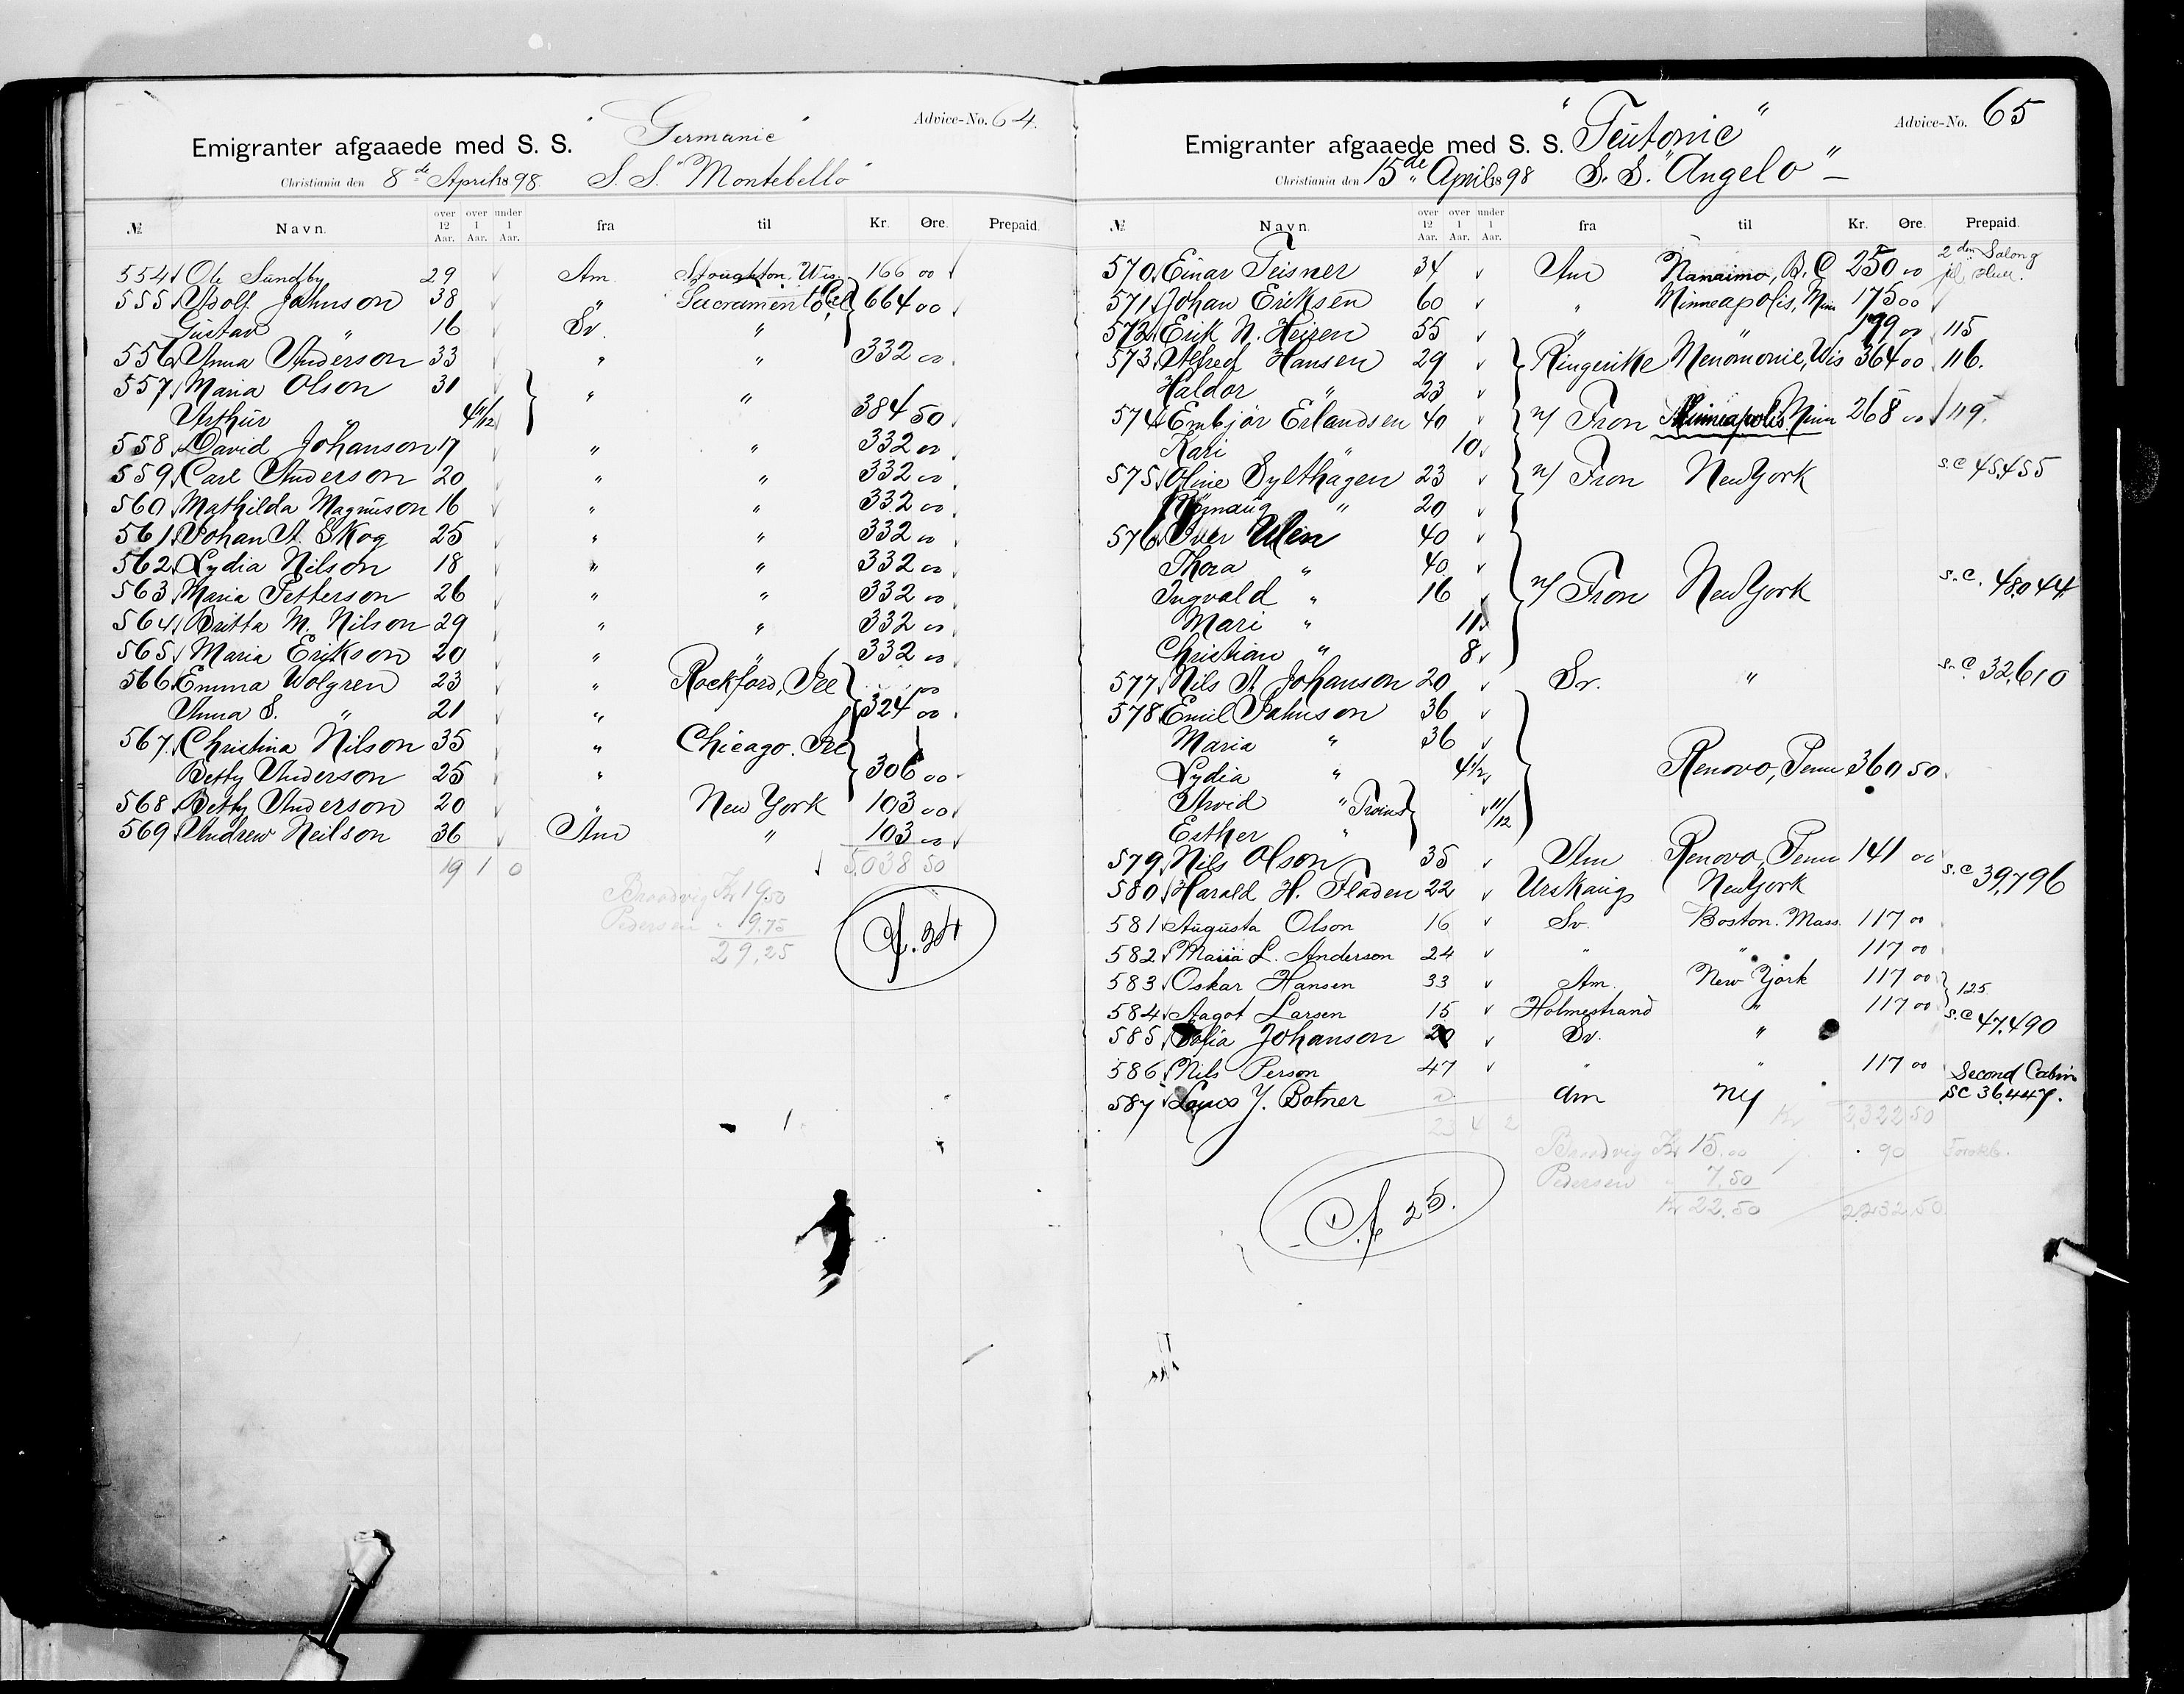 " Germanic " Advice-No. 64.
Emigranter afgaaede med S. S.
Christiania den 8de April 1898. S. S. "Montebello"
№ Navn. over 12 Aar. over 1 Aar. under 1 Aar. fra til Kr. Øre. Prepaid.
554 Ole Sundby 29 Am Stoughton. Wis. 166 00
555 Adolf Johnson 38 " Sacramento, Cal } 664 00
Gustav " 16 Sv. "
556 Anna Anderson 33 " " 332 00
557 Maria Olson 31 } " "
Arthur " 4 11/12 384 50
558 David Johanson 17 " " 332 00
559 Carl Anderson 20 " " 332 00
560 Mathilda Magnuson 16 " " 332 00
561 Johan A. Skog 25 " " 332 00
562 Lydia Nilson 18 " " 332 00
563 Maria Petterson 26 " " 332 00
564 Britta M. Nilson 29 " " 332 00
565 Maria Erikson 20 " " 332 00
566 Emma Wolgren 23 " Rockford, Ill } 00
Anna S. " 21 " 324 00
567 Christina Nilson 35 " Chicago. Ill }
Betty Anderson 25 " 306 00
568 Betty Anderson 20 " New York 103 00
569 Andrew Neilson 36 Am " 103 00
19 1 0 5,038 50
Braadvig Kr 19.50
Pedersen " 9.75
29,25
f. 34
Advice-No. 65
Emigranter afgaaede med S. S. "Teutonic"
Christiania den 15de April 1898 S. S. "Angelo"
№ Navn. over 12 Aar. over 1 Aar. under 1 Aar. fra til Kr. Øre. Prepaid.
570 Einar Teisner 34 Am Nanaimo, B. C 250 00 2den Salong
571 Johan Eriksen 60 " Minneapolis, Minn 175 00
572 Erik N. Heiren 55 " " 199 00 115
573 Alfred Hansen 29 } Ringerike Menomonie, Wis 364 00 116.
Haldor " 23
574 Embjør Erlandsen 40 } n/ Fron Minneapolis. Minn 268 00 119
Kari 10
575 Oline Sylthagen 23 } n/ Fron New York s.c 45455
Rønnaug " 20
576 Iver Ulen 40
Thora " 40
Ingvald " 16 } n/ Fron New York s.c. 48044
Mari " 11
Christian " 8
577 Nils A Johanson 20 Sv. " s.c 32,610
578 Emil Johnson 36
Maria " 36
Lydia " 4 1/2 } Renovo, Penn 360 50
Arvid " Twins } 11/12
Esther "
579 Nils Olson 35 Am Renovo, Penn 141 00
580 Harald H. Fladen 22 Urskaug New York s.c 39,796
581 Augusta Olson 16 Sv. Boston. Mass. 117 00
582 Maria L. Anderson 24 " " 117 00
583 Oskar Hansen 33 Am. New York 117 00 } 125
584 Aagot Larsen 15 Holmestrand " 117 00
585 Sofia Johanson 20 Sv. " s.c 47,490
586 Nils Person 47 " " 117 00 Second Cabin
587 Louis Y. Botner Am NY SC 36,447.
23 4 2 Kr 2,322 50
Braadvig Kr 15.00 90
Pedersen " 7,50
Kr 22,50 2,232,50
f 25.